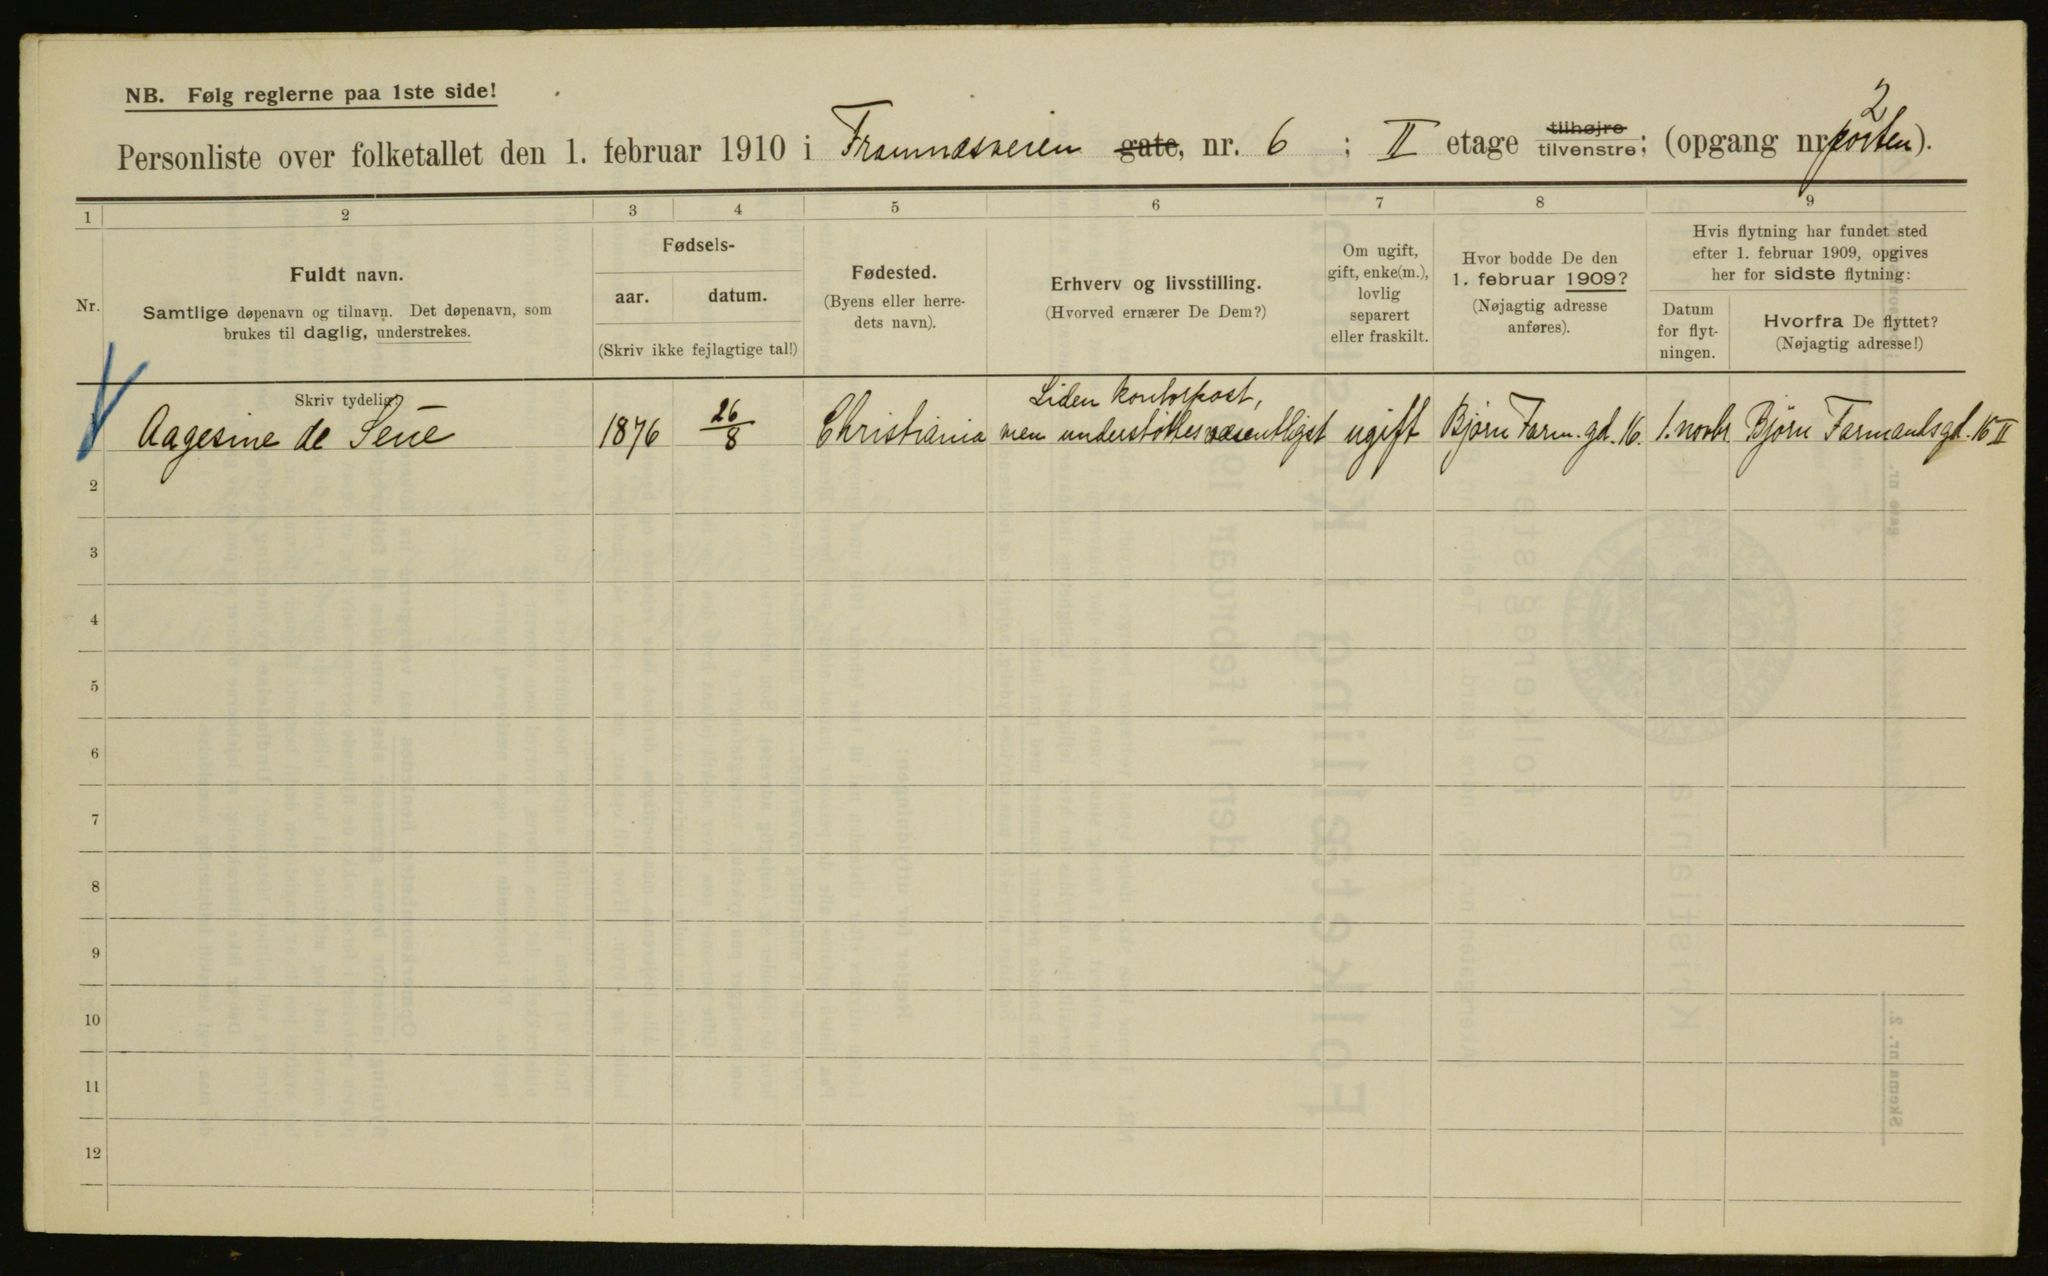 NB. Følg reglerne paa 1ste side!
2
Personliste over folketallet den 1. februar 1910 i Framnæsveien gate, nr. 6 ; II etage tilhøjre tilvenstre; (opgang nr porten).
1 2 3 4 5 6 7 8 9
Nr.
Fuldt navn.
Samtlige døpenavn og tilnavn. Det døpenavn, som
brukes til daglig, understrekes.
Fødsels-
aar. datum.
(Skriv ikke fejlagtige tal!)
Fødested.
(Byens eller herre-
dets navn).
Erhverv og livsstilling.
(Hvorved ernærer De Dem?)
Om ugift,
gift, enke(m.),
lovlig
separert
eller fraskilt.
Hvor bodde De den
1. februar 1909?
(Nøjagtig adresse
anføres).
Hvis flytning har fundet sted
efter 1. februar 1909, opgives
her for sidste flytning:
Datum
for flyt-
ningen.
Hvorfra De flyttet?
(Nøjagtig adresse!)
Skriv tydelig!
Liden kontorpost,
Aagesine de Seüe 1876 26/8 Christiania men understöttes væsentligst ugift Bjørn Farm. gd. 16. 1. novbr Bjørn Farmandsgd. 16 II
2
3
4
5
6
7
8
9
10
11
12